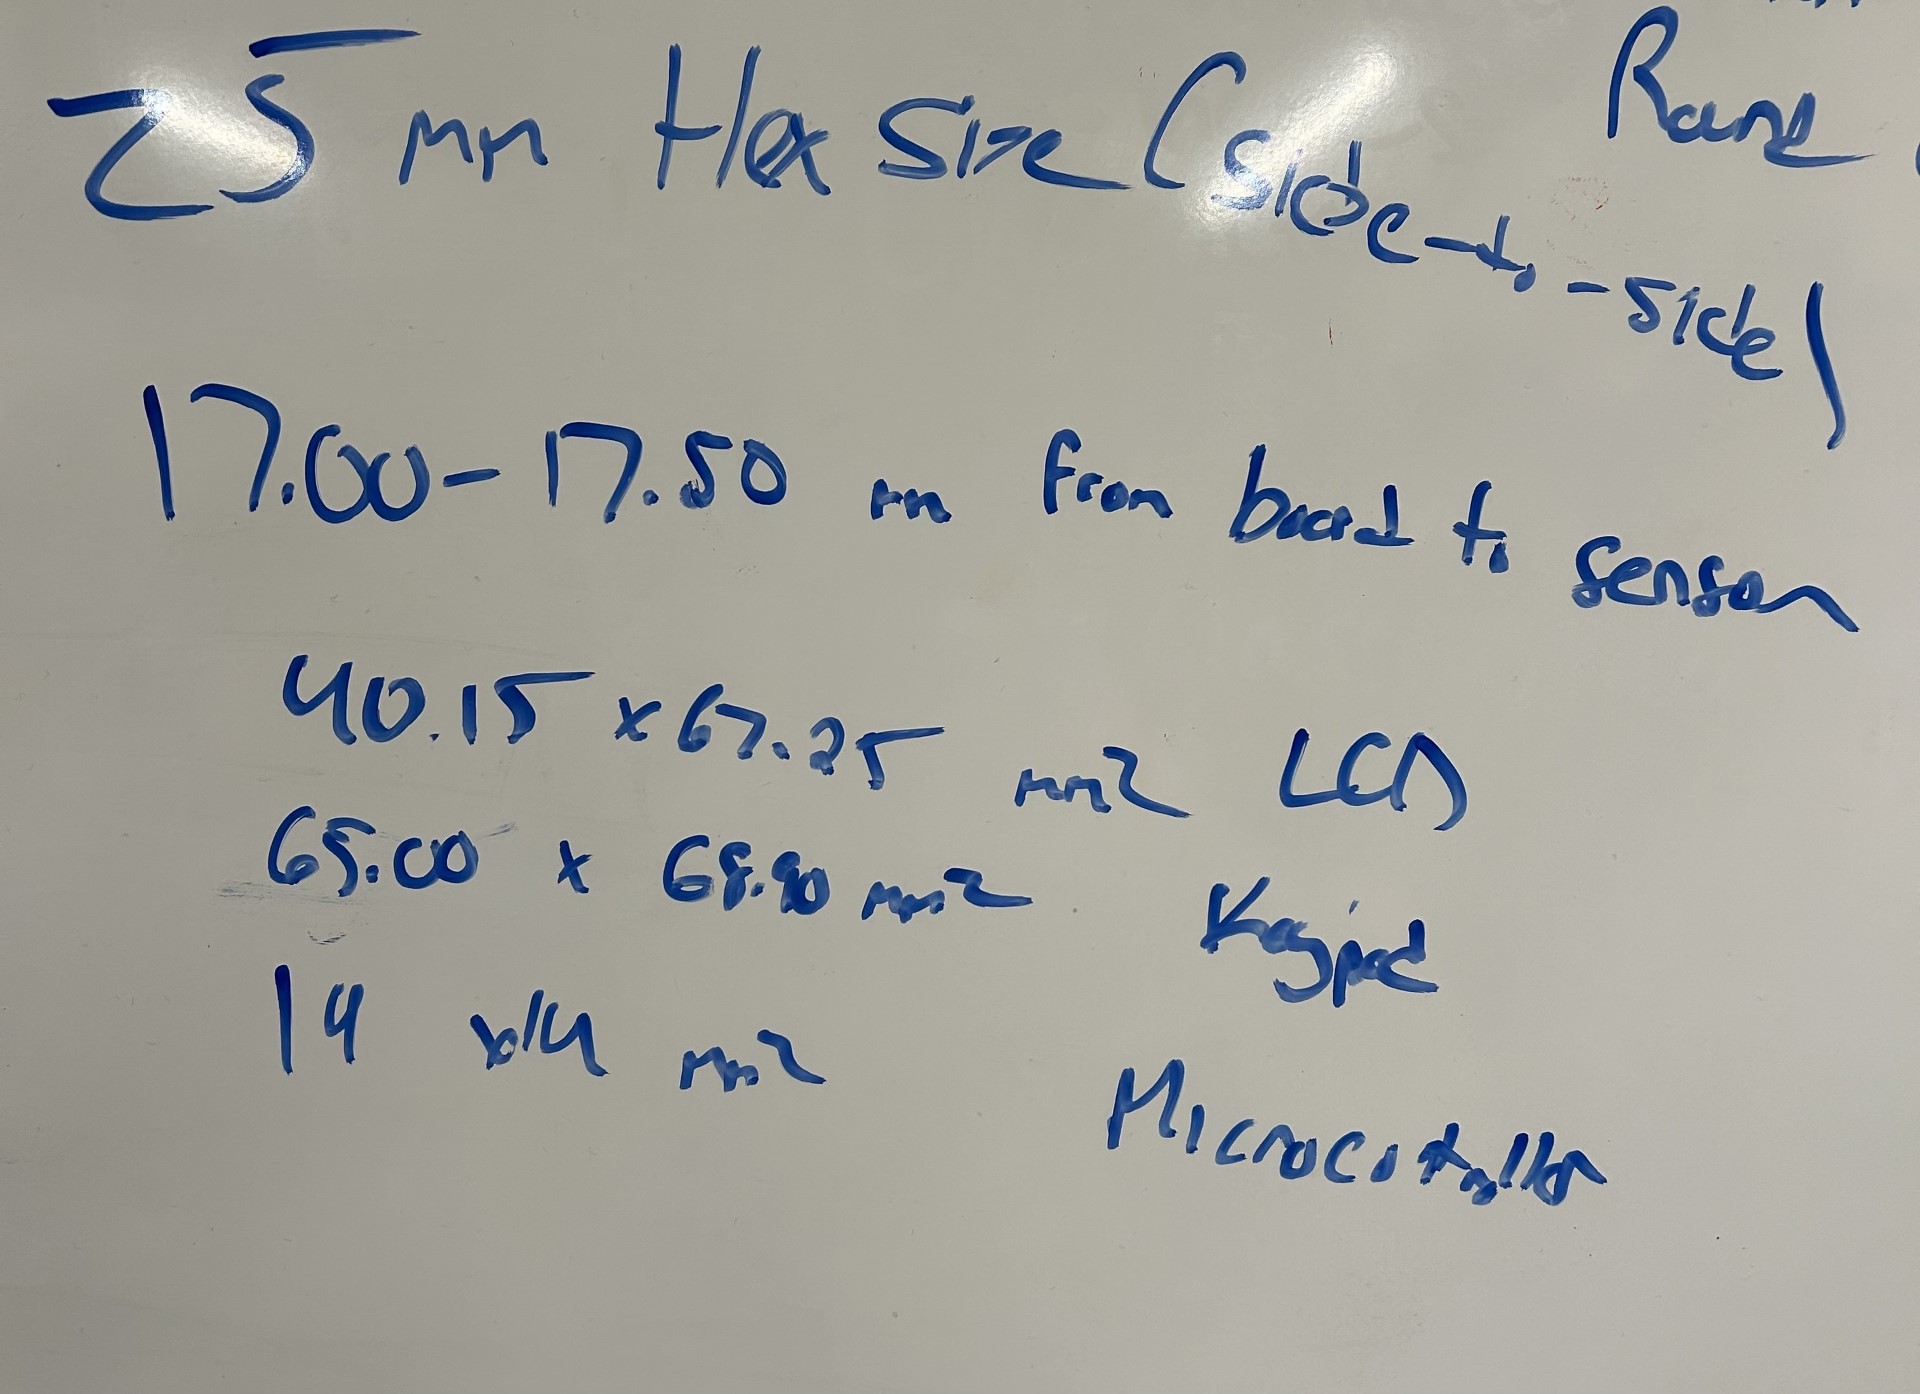 25 mm Hex Size (side-to-side)
17.00-17.50 mm from board to sensor
40.15 x 67.25 mm2 LCD
65.00 x 68.90 mm2 Keypad
14 x14 mm2 Microcotroller